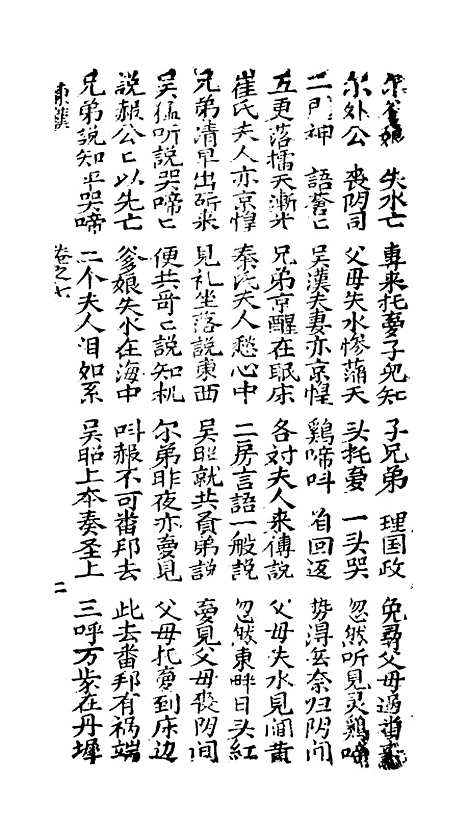 尔爹娘 失水亡 專来托夢子兒知 子兄弟 理国政 免尋父母過番
尔外公 丧阴司 父母失水惨蒲天 头托夢 一头哭 忽然听见灵鷄啼
二門神 語訾匕 吴漢夫妻亦京惶 鷄啼呌 省回返 势得無奈归阴间
五更落擂天漸光 兄弟京醒在眠床 各对夫人来傳説 父母失水見閻黄
崔氏夫人亦京惶 秦氏夫人愁心中 二房言語一般説 忽然東畔日头紅
兄弟清早出所来 見礼坐落説東西 吴昭就共貟弟説 夢見父母丧阴间
吴猛听説哭啼匕 便共哥匕説知机 尔弟昨夜亦夢見 父母托夢到床边
説赧公匕以先亡 爹娘失水在海中 呌赧不可番邦去 此去番邦有祸端
兄弟説知平哭啼 二个夫人泪如系 吴昭上本奏圣上 三呼万岁在丹墀
東漢 卷之七 二